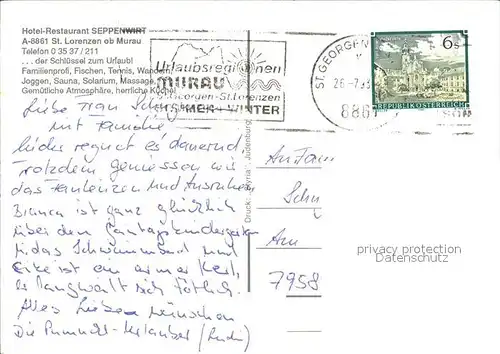 Hotel-Restaurant SEPPENWIRT
A-8861 St. Lorenzen ob Murau
Telefon 0 35 37 / 211
... der Schlüssel zum Urlaub!
Familienprofi, Fischen, Tennis, Wandern
Joggen, Sauna, Solarium, Massage,
Gemütliche Atmosphäre, herrliche Küche!
Urlaubsregionen
MURAU
St.Georgen-St.Lorenzen
SOMMER-WINTER
ST. GEORGEN
26-7.93
8861
6s
REPUBLIK ÖSTERREICH
Liebe Frau
mit Familie
leider regnet es dauernd
trotzdem geniessen wir
das Faulenzen und Ausruhen
Bianca ist ganz glücklich
über den Ganztagskindergarten
u. das Schwimmbad und
Eike ist ein armer Kerl,
er langweilt sich tödlich.
Alles Liebe wünschen
Die Urlauber
Druck: „Styria“, Judenburg
An Fam
Am
7958
privacy protection
Datenschutz